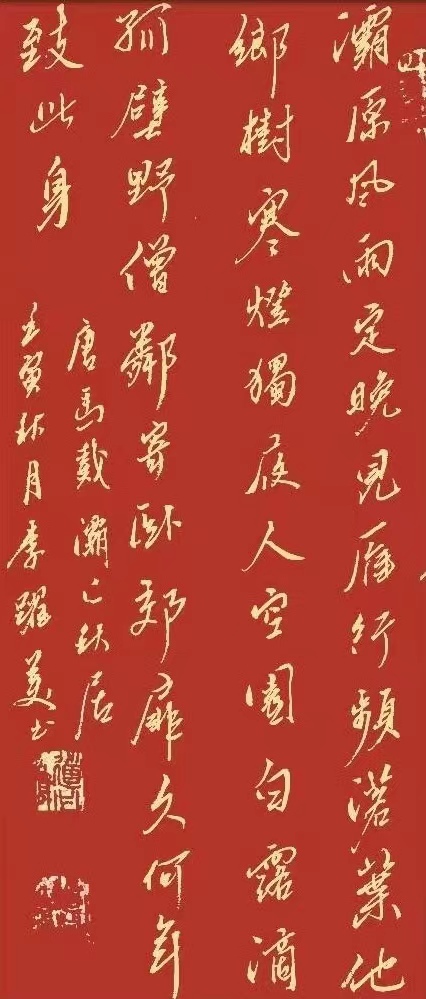 灞原风雨定晚见雁行频落葉他
鄉樹寒燈獨夜人空園白露滴
孤壁野僧鄰寄卧郊扉久何年
致此身
唐馬戴灞上秋居
壬寅秋月李躍美书